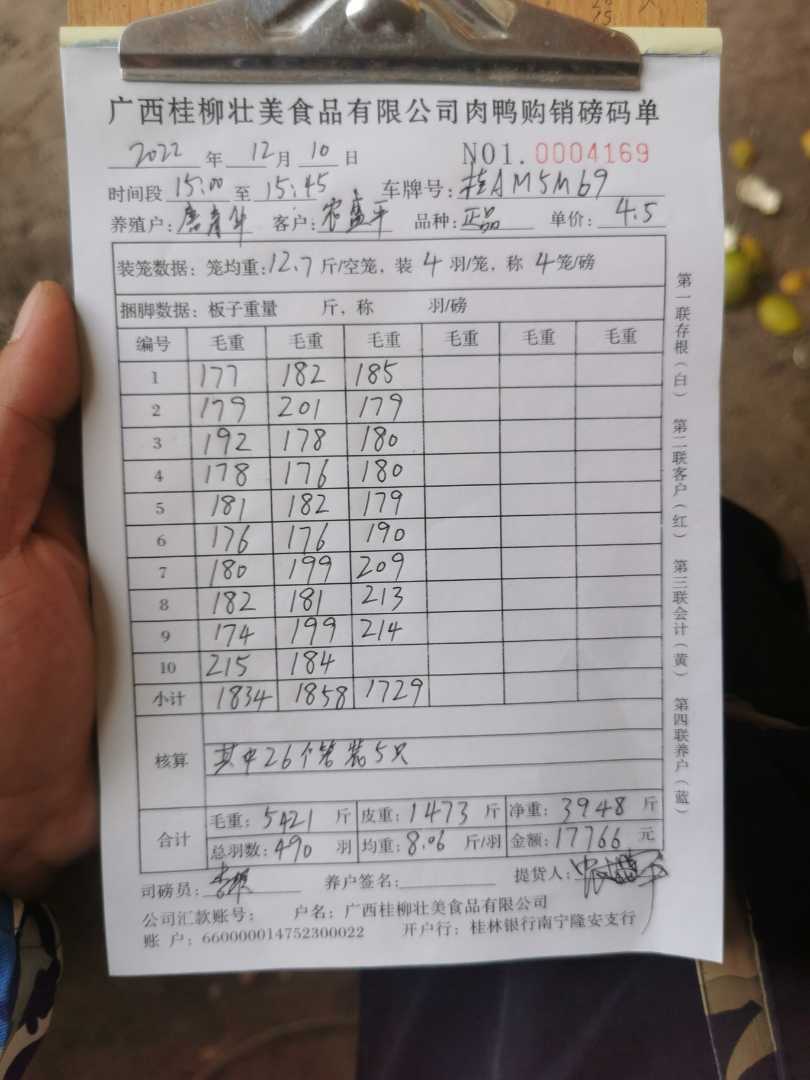 广西桂柳壮美食品有限公司肉鸭购销磅码单
2022 年 12 月 10 日 NO1.0004169
时间段 15:00 至 15:45 车牌号: 桂AM5M69
养殖户: 客户: 农盛平 品种: 正品 单价: 4.5
装笼数据: 笼均重: 12.7 斤/空笼, 装 4 羽/笼, 称 4 笼/磅
捆脚数据: 板子重量 斤, 称 羽/磅
编号 毛重 毛重 毛重 毛重 毛重 毛重
1 177 182 185
2 179 201 179
3 192 178 180
4 178 176 180
5 181 182 179
6 176 176 190
7 180 199 209
8 182 181 213
9 174 199 214
10 215 184
小计 1834 1858 1729
核算 其中26个笼装5只
合计 毛重: 5421 斤 皮重: 1473 斤 净重: 3948 斤
总羽数: 490 羽 均重: 8.06 斤/羽 金额: 17766 元
司磅员: 养户签名: 提货人:
公司汇款账号: 户名: 广西桂柳壮美食品有限公司
账 户: 660000014752300022 开户行: 桂林银行南宁隆安支行
第一联存根(白) 第二联客户(红) 第三联会计(黄) 第四联养户(蓝)